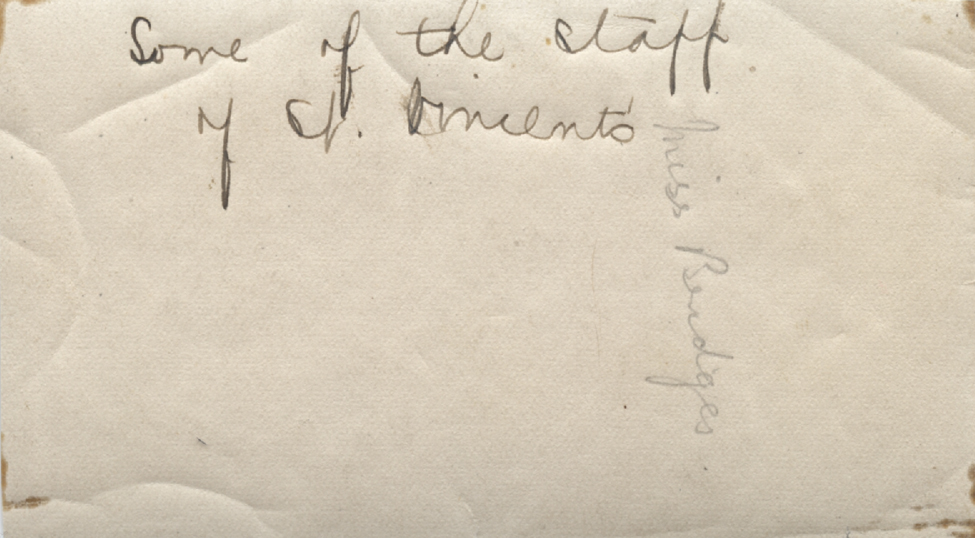 Some of the staff
of St. Vincents
Miss Bendiges